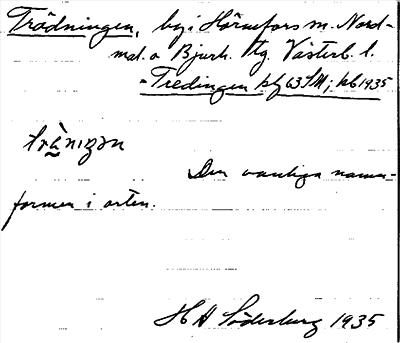 Trädningen, by, Hörnefors sn. Nord-
mal. o Bjurh. tg. Västerb. l.
= Tredingen kbl 63 SV; kb 1935
Den vanliga namn-
formen i orten.
H A Söderberg 1935